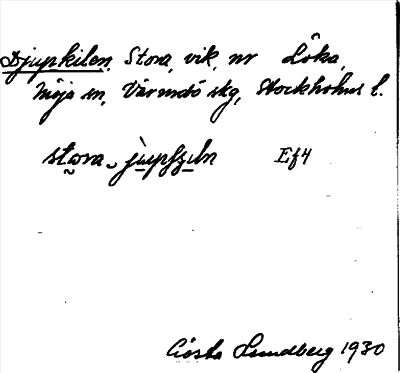 Djupkilen, Stora, vik, nr Löka,
Möja sn, Värmdö skg, Stockholms l.
stora jùpɕi̱ln Ef4
Gösta Lundberg 1930